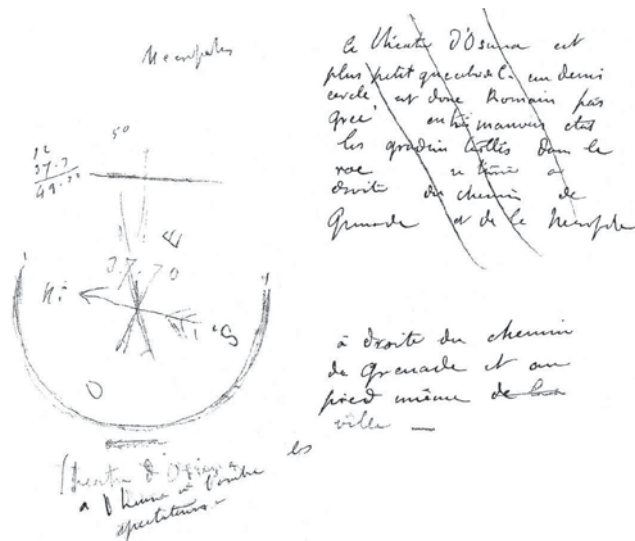 50
12
37.7
E
37.70
N
S
O
Theatre d'Osuna
a heure à l'ombre les
spectateurs
Le théatre d'Osuna est
plus petit que celui de un demi
cercle est donc Romain pas
grec en très mauvais etat
les gradins taillés dans le
roc se a
droite du chemin de
Grenade et de la Necropole
à droite du chemin
de Grenade et au
pied même de la
ville —